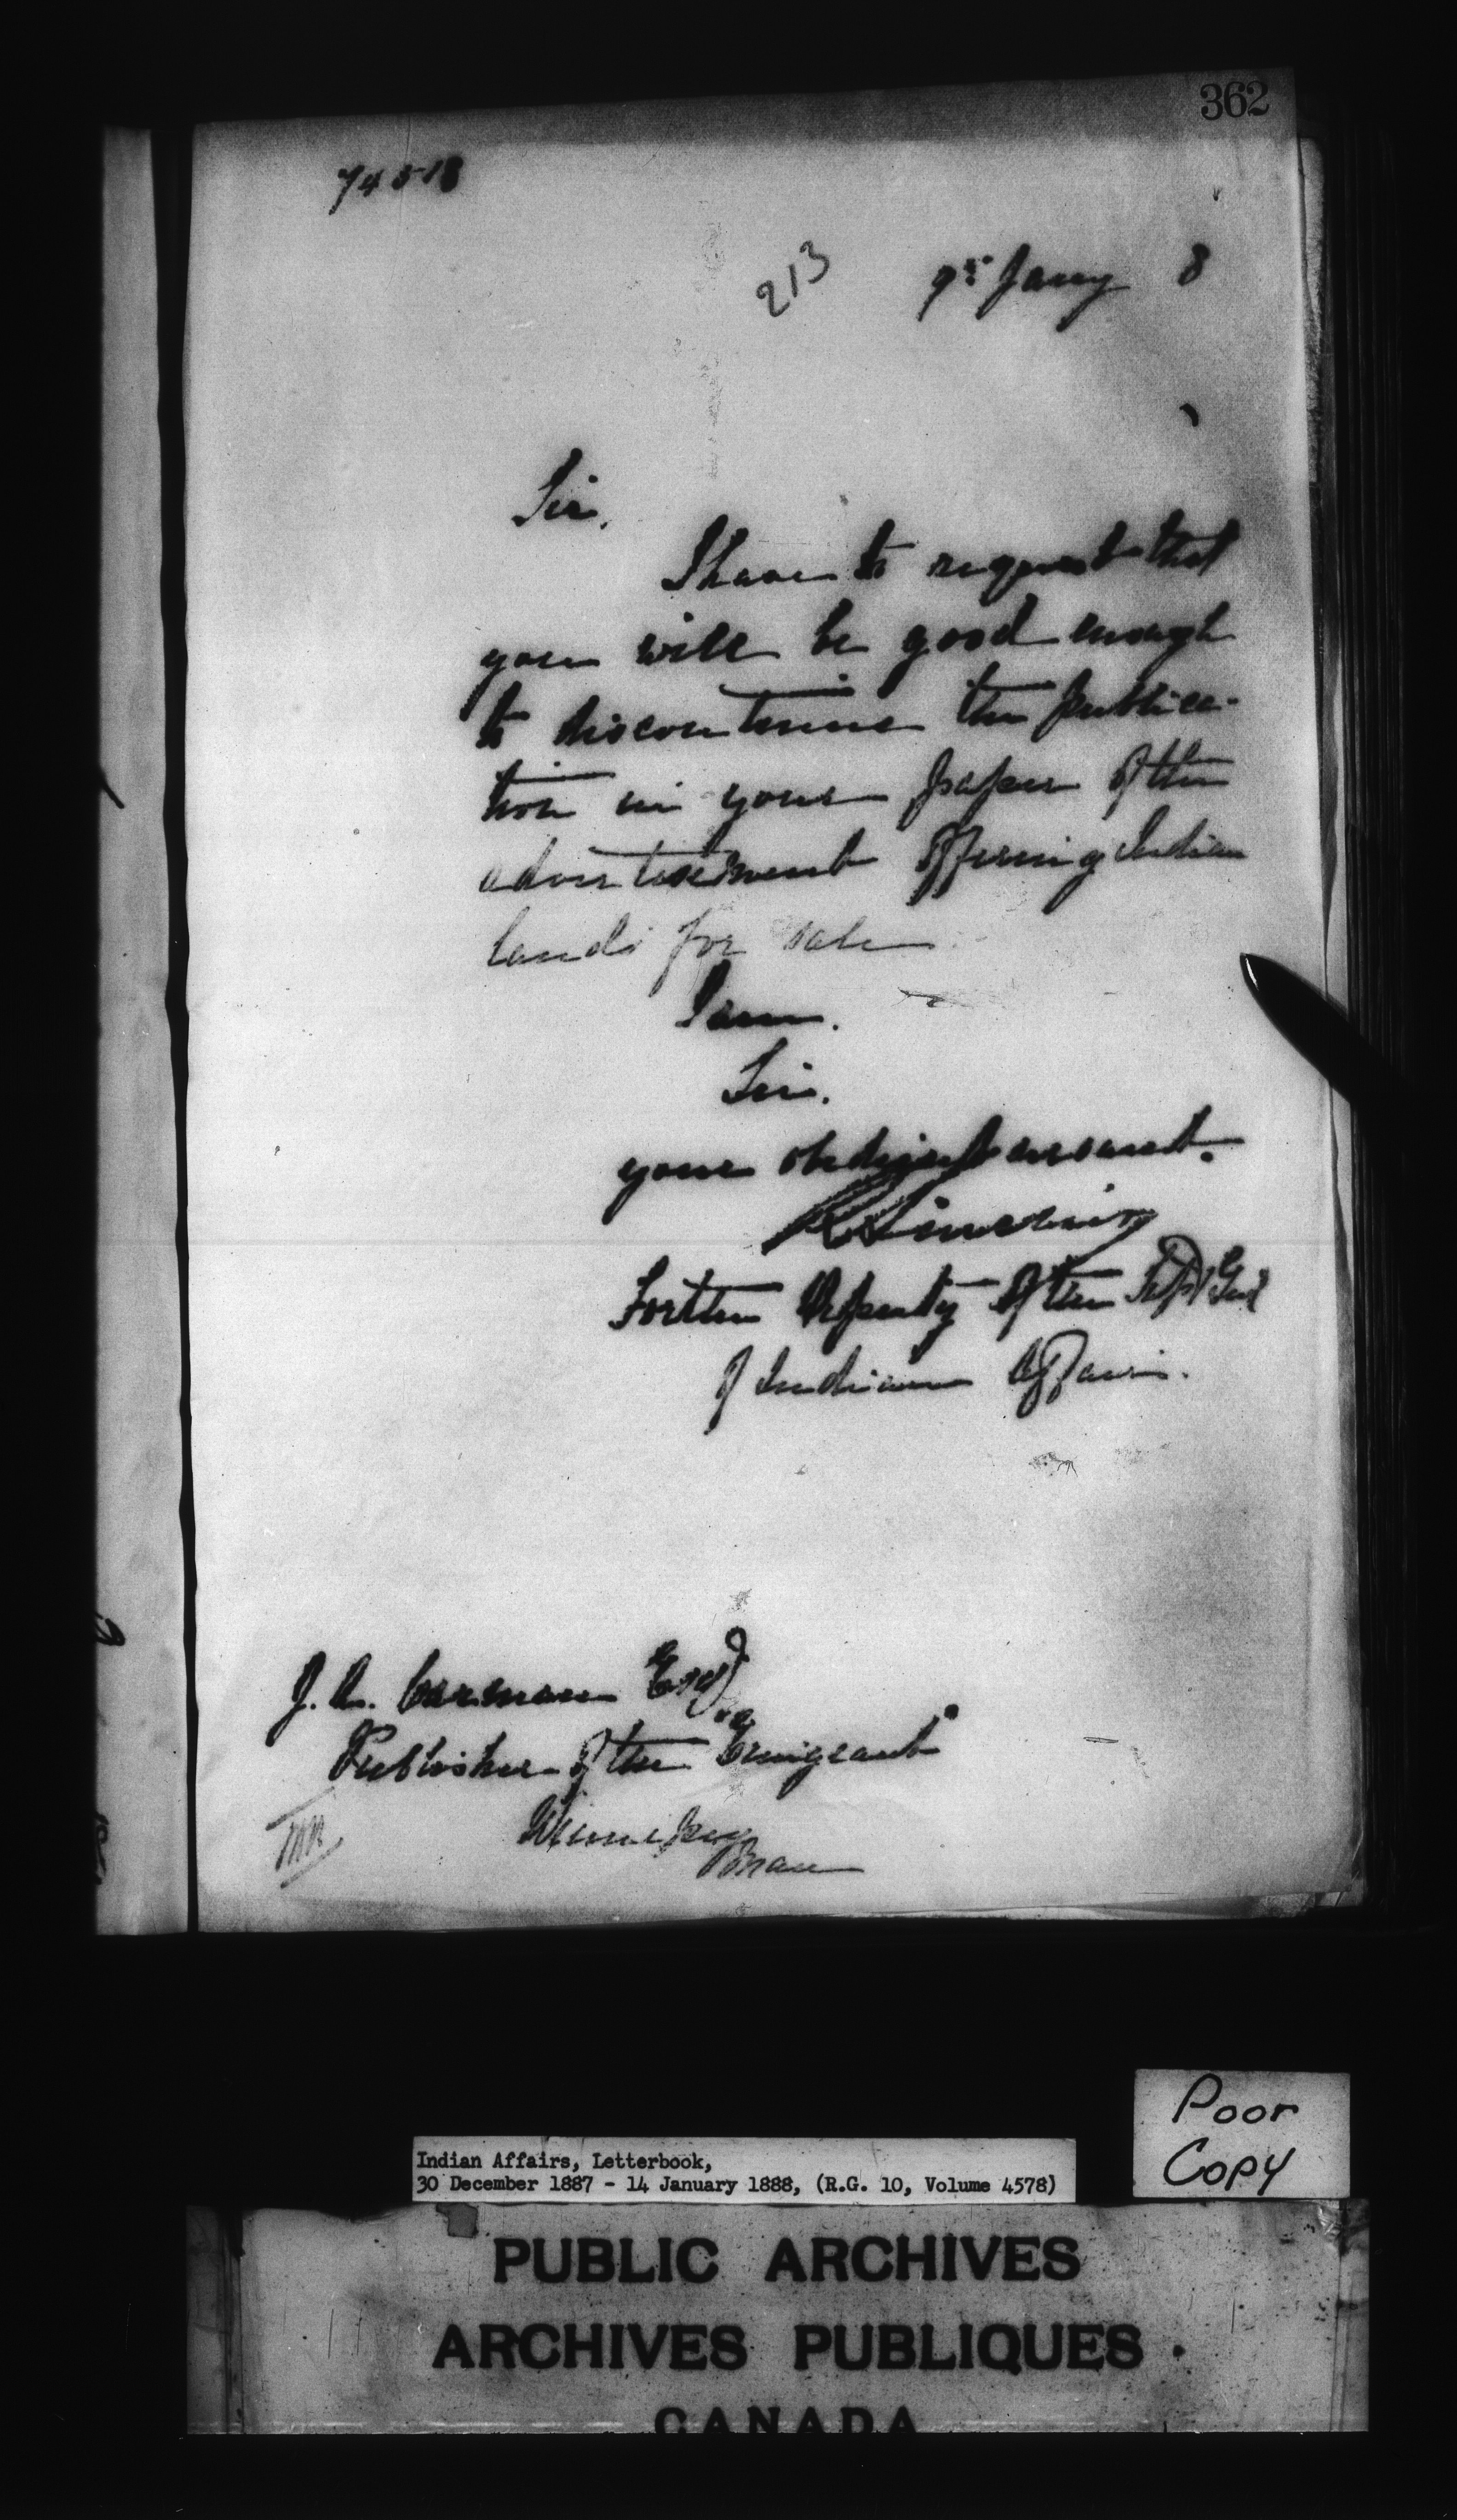 362
74518
213 9th Jany 8
Sir,
I have to request that
you will be good enough
to discontinue the publica-
tion in your paper of the
advertisement offering Indian
lands for sale
I am.
Sir.
your obedient servant.
R Sinclair
For the Deputy of the Supt Genl
of Indian Affairs.
J. A. Carman Esq
Publisher of the "Emigrant"
Winnipeg
Man
Poor
Copy
Indian Affairs, Letterbook,
30 December 1887 - 14 January 1888, (R.G. 10, Volume 4578)
PUBLIC ARCHIVES
ARCHIVES PUBLIQUES
CANADA